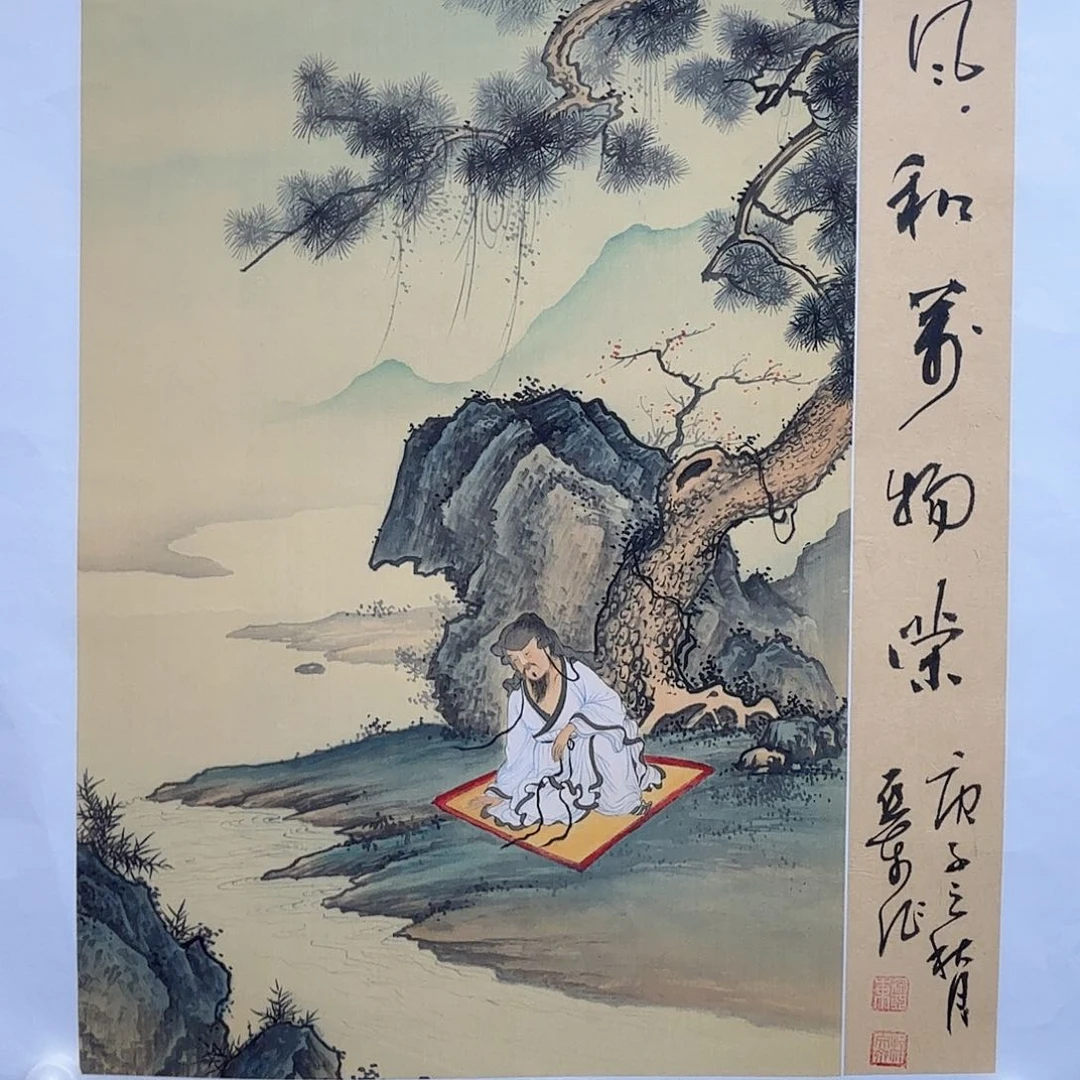 風和萬物榮
庚子之秋月